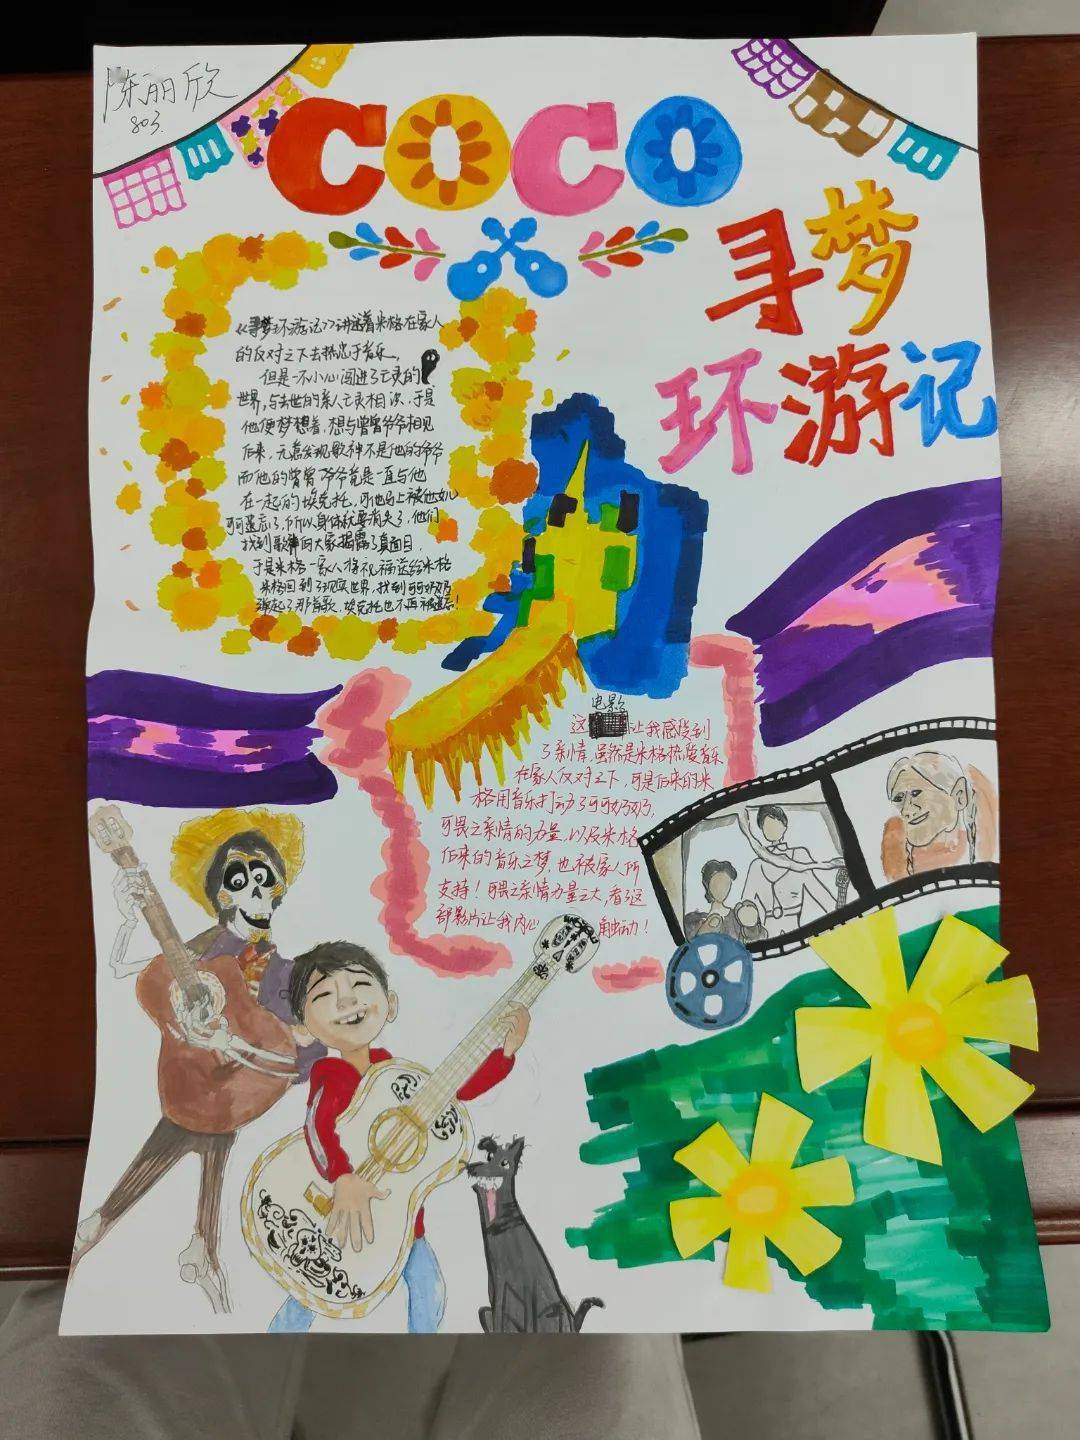 陈丽欣
803.
COCO
寻梦
环游记
《寻梦环游记》讲述着米格在家人
的反对之下去热忠于音乐。
但是一不小心闯进了亡灵的
世界,与去世的亲人亡灵相认,于是
他便梦想着,想与曾曾爷爷相见
后来,无意发现歌神不是他的爷爷
而他的曾曾爷爷竟是一直与他
在一起的埃克托,可他马上被他女儿
可可遗忘了,所以身体就要消失了,他们
找到歌神向大家揭露了真面目.
于是米格一家人将祝福送给米格
米格回到了现实世界,找到可可奶奶
弹起了那首歌,埃克托也不再被遗忘!
电影
这 让我感受到
了亲情,虽然是米格热爱音乐
在家人反对之下,可是后来的米
格用音乐打动了可可奶奶,
可畏之亲情的力量,以及米格
后来的音乐之梦,也被家人所
支持!可畏之亲情力量之大,看了这
部影片让我内心 触动!